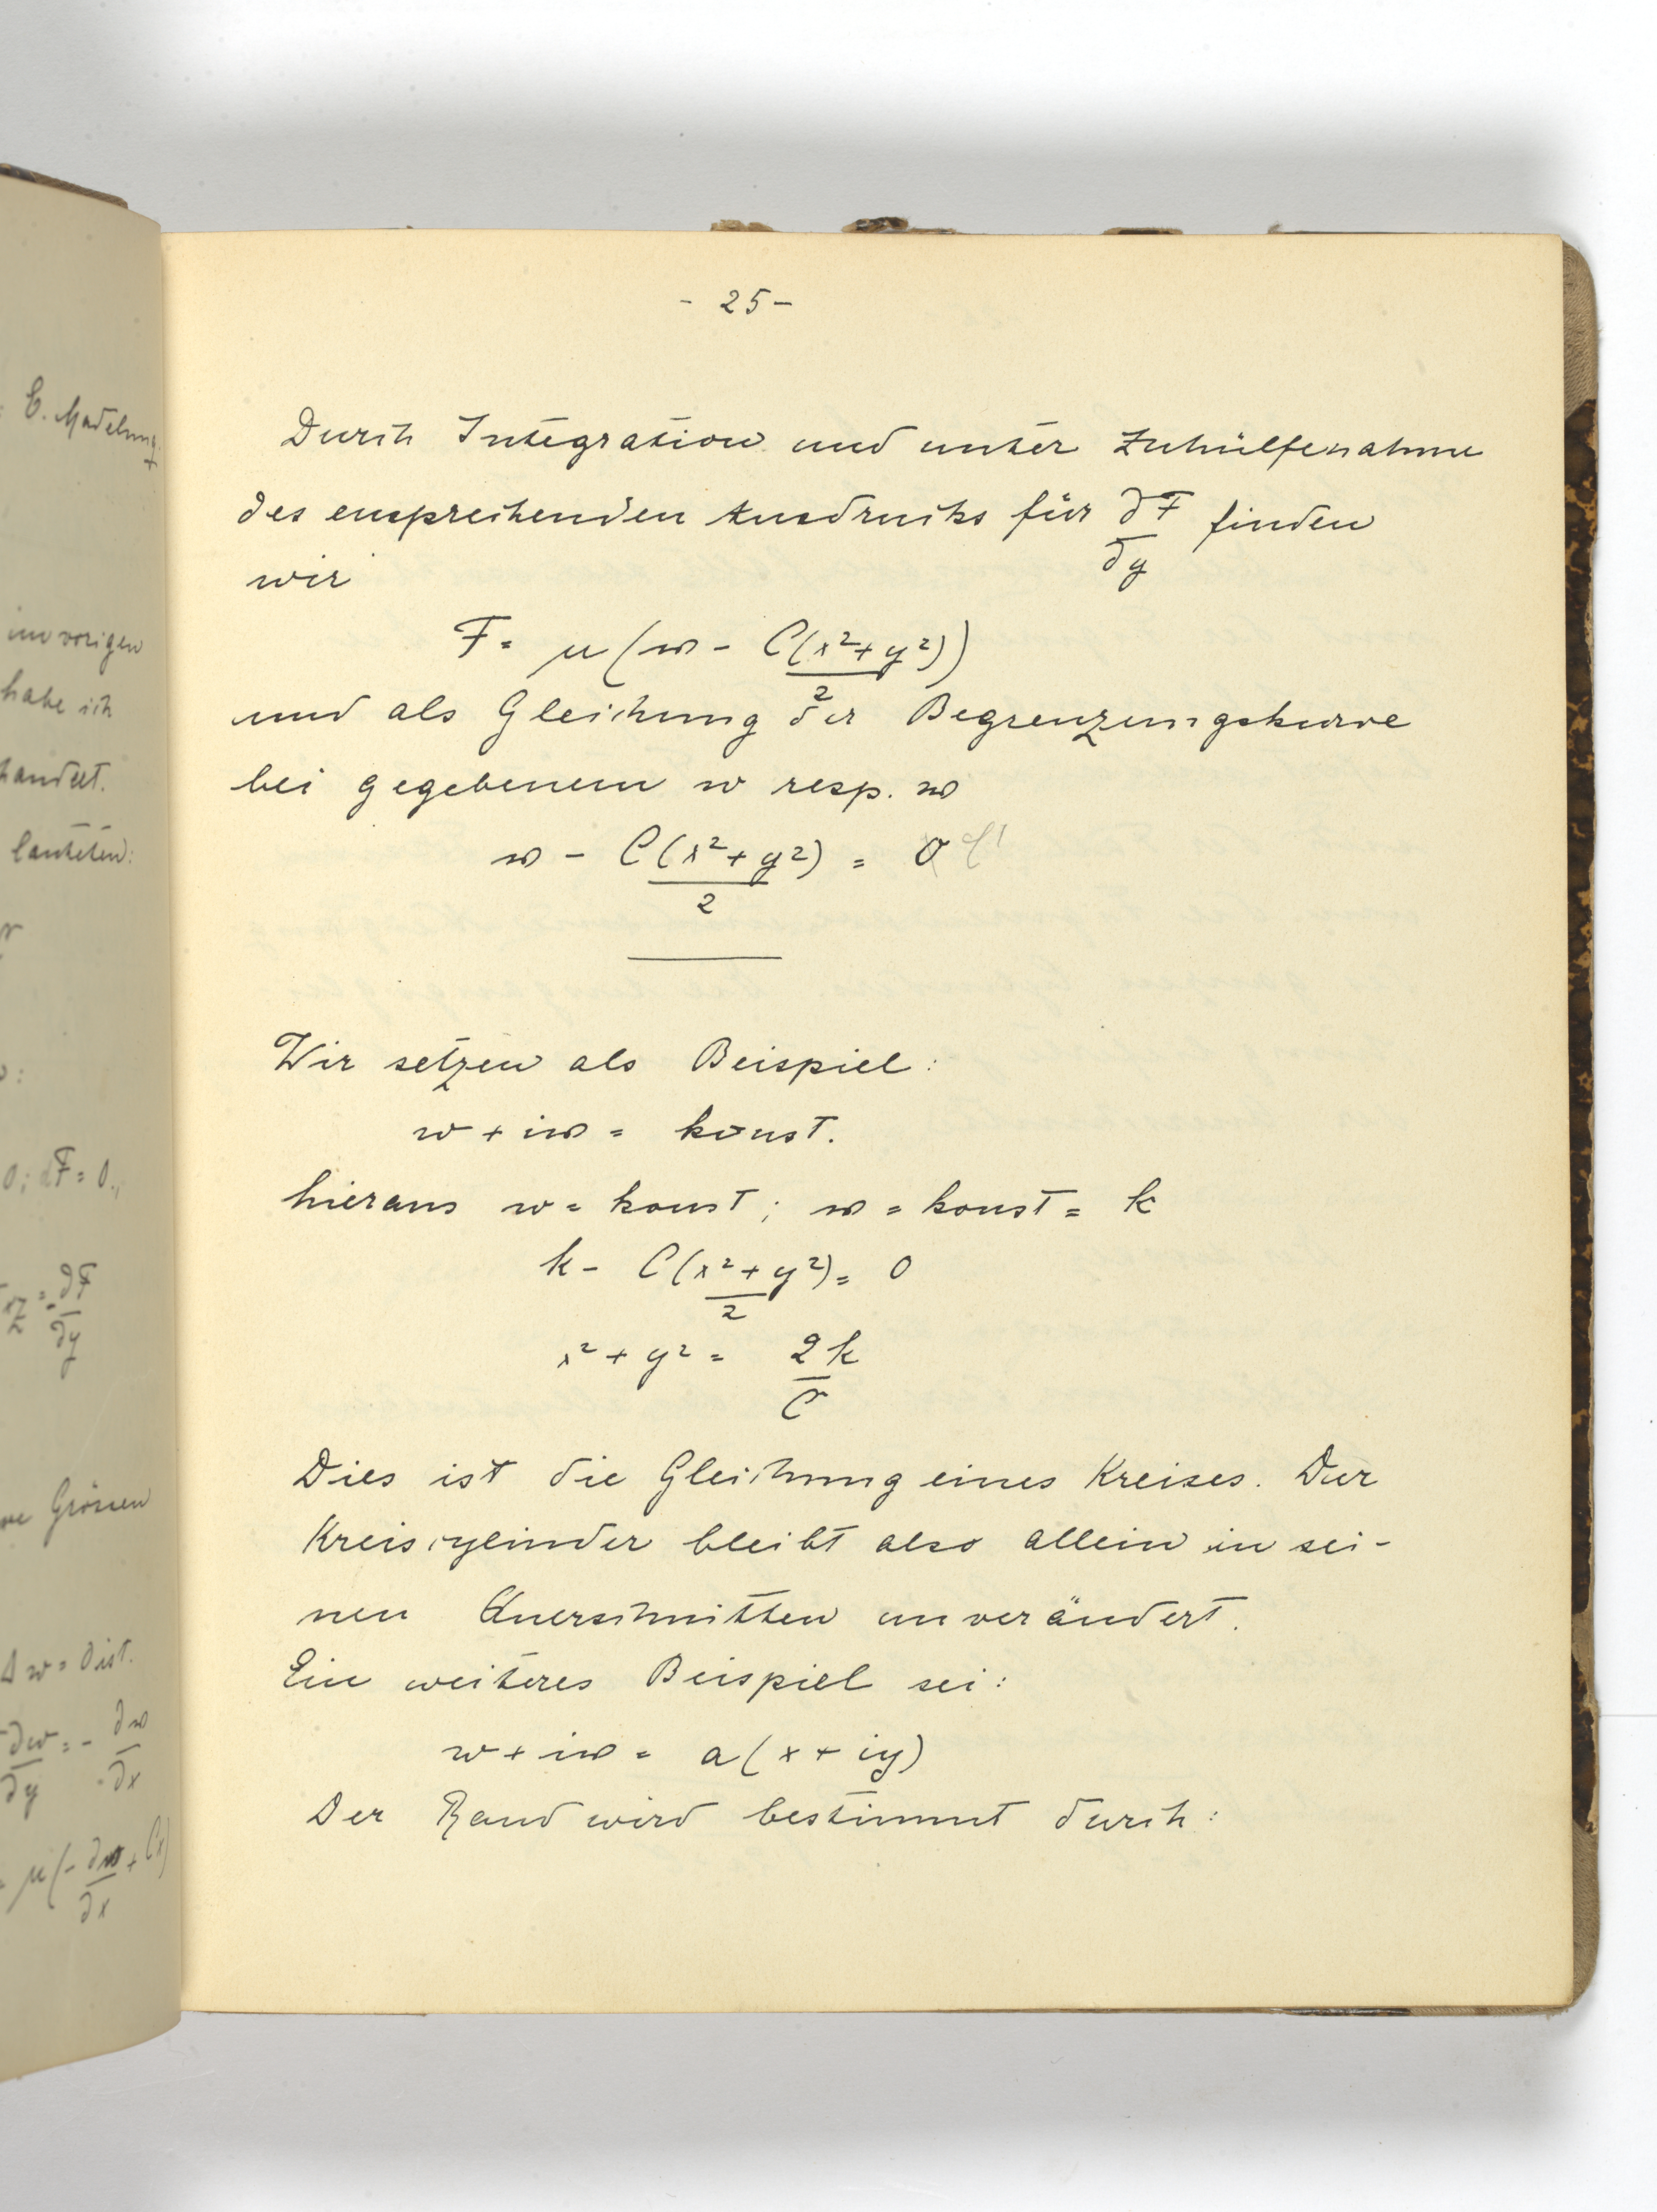 E. Madelung
im vorigen
habe ich
handelt.
lauteten:
0; dF = 0.,
∂F
∂y
Grössen
Δ w = 0 ist.
∂w = - ∂𝔴
∂y ∂x
μ(- ∂𝔴 + Cx)
∂x
- 25 -
Durch Integration und unter Zuhülfenahme
des ensprechenden Ausdrucks für ∂F/∂y finden
wir
F = μ(𝔴 - C(x²+y²)/2)
und als Gleichung der Begrenzungskurve
bei gegebenem w resp. 𝔴
𝔴 - C(x²+y²)/2 = 0 C'
Wir setzen als Beispiel:
w + i𝔴 = konst.
hieraus w = konst; 𝔴 = konst = k
k - C(x²+y²)/2 = 0
x² + y² = 2k/C
Dies ist die Gleichung eines Kreises. Der
Kreiscylinder bleibt also allein in sei-
nen Querschnitten unverändert.
Ein weiteres Beispiel sei:
w + i𝔴 = a(x + iy)
Der Rand wird bestimmt durch: